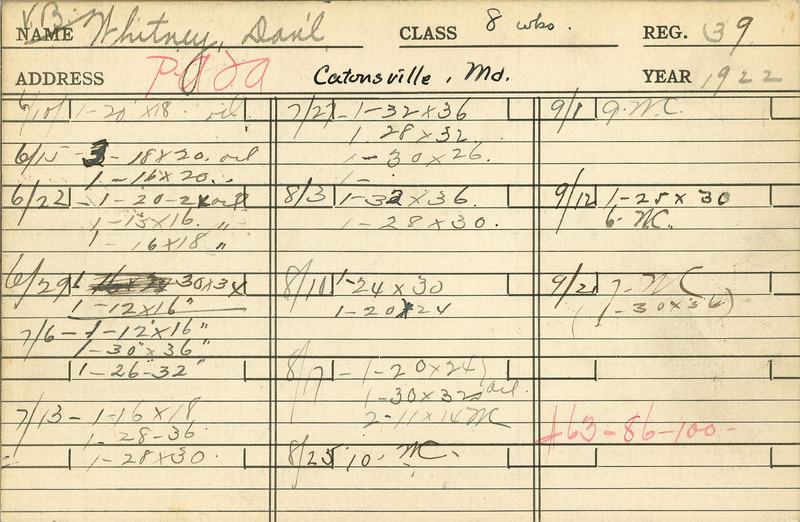 NAME Whitney, Dan'l CLASS 8 wks. REG. 39
ADDRESS Catonsville, Md. YEAR 1922
6/10 1-20 x 18. oil
6/15 3 - 18 x 20. oil
1 - 16 x 20.
6/22 - 1 - 20 - 2 oil
1 - 13 x 16. "
1 - 16 x 18 "
6/29 1 30 x 34
1 - 12 x 16"
7/6 - 1 - 12" x 16"
1 - 30" x 36"
1 - 26 - 32"
7/13 - 1 - 16 x 18
1 - 28 - 36
1 - 28 x 30.
7/27 - 1 - 32 x 36
1 28 x 32.
1 - 30 x 26.
1 -
8/3 1 - 32 x 36.
1 - 28 x 30.
8/11 1 - 24 x 30
1 - 20 x 24
8/17 - 1 - 20 x 24
1 - 30 x 32 oil
2 - 11 x 14 M
8/25 10. M.
9/1 9. W.C.
9/12 1 - 25 x 30
6. W.C.
9/21 7 - W.C.
(1 - 30 x 36)
#63 - 86 - 100 -